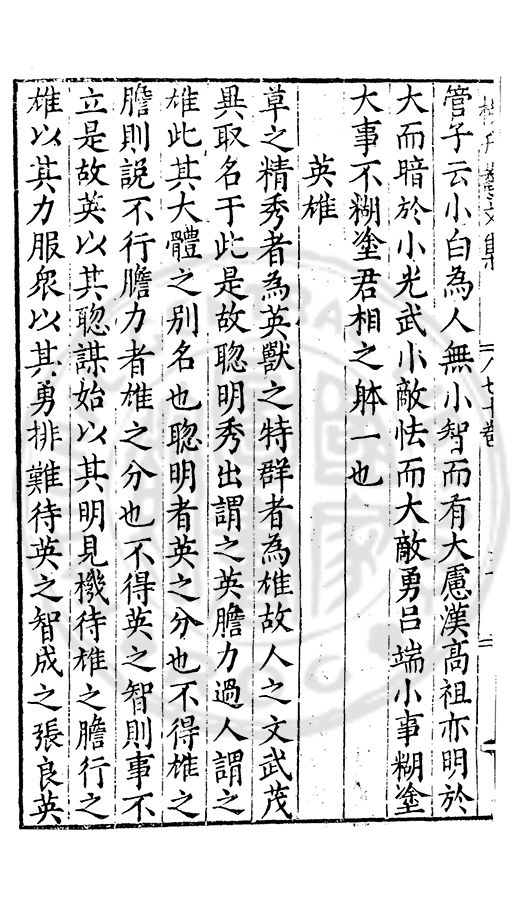 管子云小白為人無小智而有大慮漢高祖亦明於
大而暗於小光武小敵怯而大敵勇吕端小事糊塗
大事不糊塗君相之躰一也
英雄
草之精秀者為英獸之特群者為雄故人之文武茂
異取名于此是故聦明秀出謂之英膽力過人謂之
雄此其大體之别名也聦明者英之分也不得雄之
膽則説不行膽力者雄之分也不得英之智則事不
立是故英以其聦謀始以其明見機待雄之膽行之
雄以其力服衆以其勇排難待英之智成之張良英